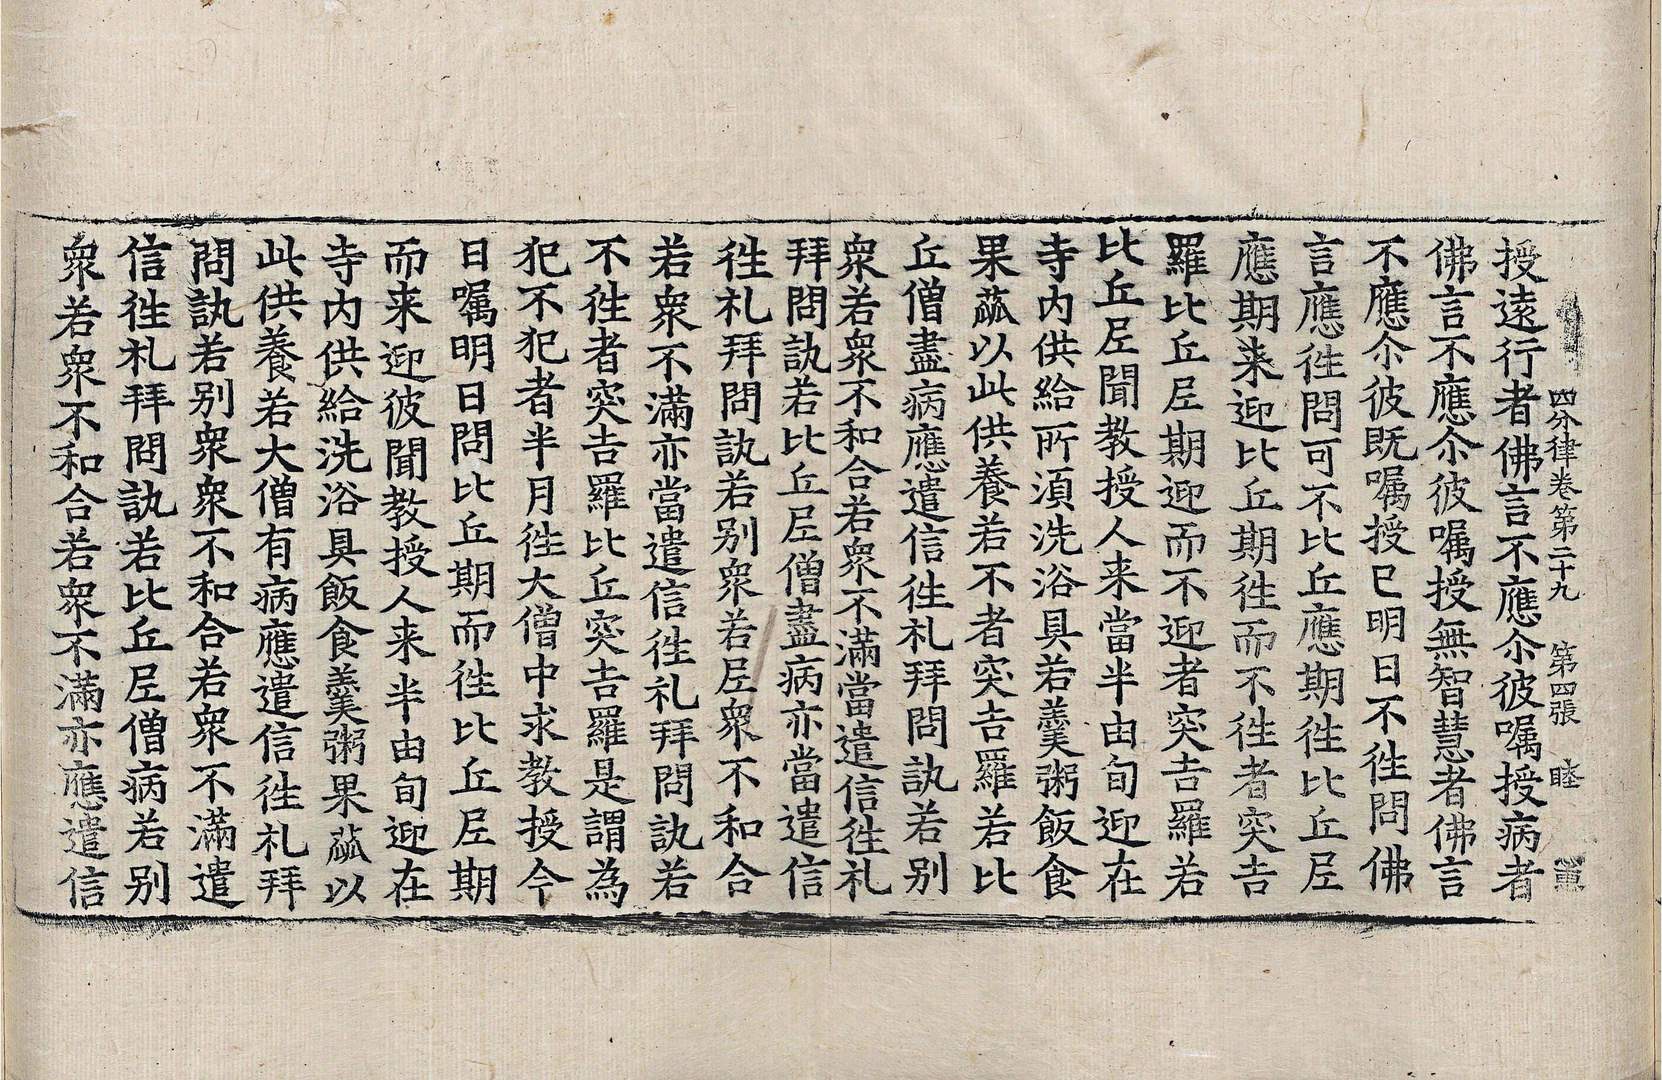 四分律卷第二十九　第四張　睦
授遠行者佛言不應尒彼囑授病者
佛言不應尒彼囑授無智慧者佛言
不應尒彼既囑授已明日不徃問佛
言應徃問可不比丘應期徃比丘尼
應期来迎比丘期徃而不徃者突吉
羅比丘尼期迎而不迎者突吉羅若
比丘尼聞教授人来當半由旬迎在
寺内供給所湏洗浴具若羹粥飯食
果蓏以此供養若不者突吉羅若比
丘僧盡病應遣信徃礼拜問訊若别
衆若衆不和合若衆不滿當遣信徃礼
拜問訊若比丘尼僧盡病亦當遣信
徃礼拜問訊若别衆若尼衆不和合
若衆不滿亦當遣信徃礼拜問訊若
不徃者突吉羅比丘突吉羅是謂為
犯不犯者半月徃大僧中求教授今
日囑明日問比丘期而徃比丘尼期
而来迎彼聞教授人来半由旬迎在
寺内供給洗浴具飯食羹粥果蓏以
此供養若大僧有病應遣信徃礼拜
問訊若别衆衆不和合若衆不滿遣
信徃礼拜問訊若比丘尼僧病若别
衆若衆不和合若衆不滿亦應遣信